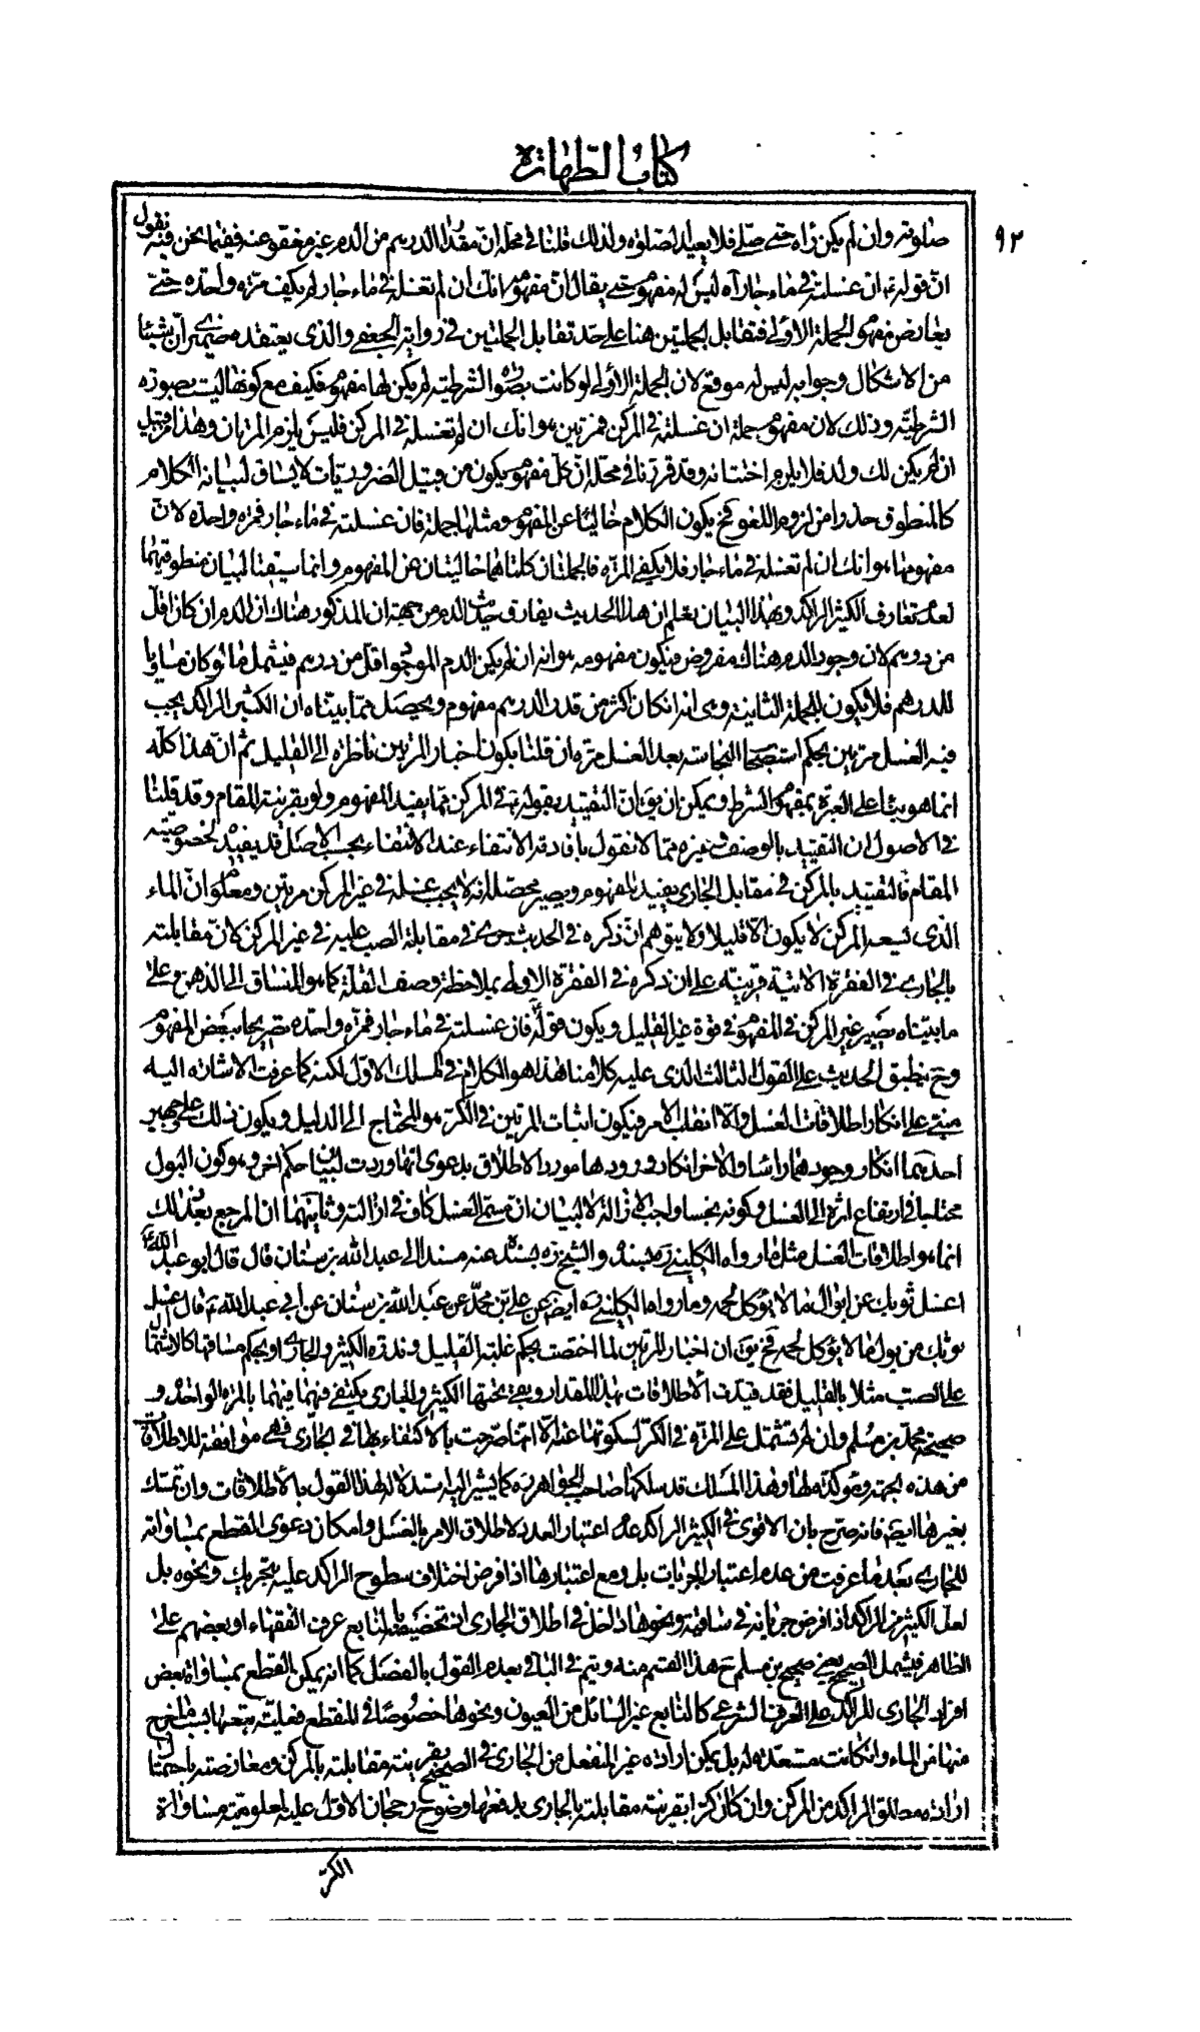 كتاب الطهارة
٩٢
صلوته وان لم يكن رآه حتى صلى فلا يعيد الصلوة ولذلك قلنا في محله ان مقدار الدرهم من الدم غير معفو عنه ففيما نحن فيه نقول
ان قوله ع ان غسلته في ماء جار آه ليس له مفهوم حتى يقال ان مفهومه انك ان لم تغسله في ماء جار لم يكف مرة واحدة حتى
يعارض مفهوم الجملة الاولى فتقابل الجملتين هنا على حد تقابل الجملتين في رواية الجعفي والذي يعتقده ضميري ان شيئا
من الاشكال وجوابه ليس له موقع لان الجملة الاولى لو كانت بصورة الشرطية لم يكن لها مفهوم فكيف مع كونها ليست بصورة
الشرطية وذلك لان مفهوم جملة ان غسلته في المركن فمرتين هو انك ان لم تغسله في المركن فليس يلزم المرتان وهذا من قبيل
ان لم يكن لك ولد فلا يلزم اختتانه وقد قررنا في محله ان كل مفهوم يكون من قبيل الضروريات لا يساق لبيانه الكلام
كالمنطوق حذرا من لزوم اللغو فح يكون الكلام خاليا عن المفهوم ومثلها جملة فان غسلته في ماء جار فمرة واحدة لان
مفهومها هو انك ان لم تغسله في ماء جار فلا يكفي المرة فالجملتان كلتاهما خاليتان عن المفهوم وانما سيقتا لبيان منطوقيهما
لعدم تعارف الكثير الراكد وبهذا البيان يعلم ان هذا الحديث يفارق حديث الدم من جهة ان المذكور هناك ان الدم ان كان اقل
من درهم لان وجود الدم هناك مفروض فيكون مفهومه هو انه ان لم يكن الدم الموجود اقل من درهم فيشمل ما لو كان مساويا
للدرهم فلا يكون للجملة الثانية وهى انه ان كان اكثر من قدر الدرهم مفهوم ويحصل مما بيناه ان الكثير الراكد يجب
فيه الغسل مرتين بحكم استصحاب النجاسة بعد الغسل مرة وان قلنا بكون اخبار المرتين ناظرة الى القليل ثم ان هذا كله
انما هو بناء على العبرة بمفهوم الشرط ويمكن ان يق ان التقييد بقوله ع في المركن مما يفيد المفهوم ولو بقرينة المقام وقد قلنا
في الاصول ان التقييد بالوصف وغيره مما لا نقول بافادته الانتفاء عند الانتفاء بحسب الاصل قد يفيده لخصوصية
المقام فالتقييد بالمركن في مقابل الجارى يفيد المفهوم ويصير محصله انه لا يجب غسله في غير المركن مرتين ومعلوم ان الماء
الذى يسعه المركن لا يكون الا قليلا ولا يتوهم ان ذكره في الحديث في مقابلة الصب عليه في غير المركن لان مقابلته
بالجارى في الفقرة الاتية قرينة على ان ذكره في الفقرة الاولى بملاحظة وصف القلة كما هو المنساق الى الذهن وعلى
ما بيناه يصير غير المركن في المفهوم في قوة غير القليل ويكون قوله فان غسلته في ماء جار فمرة واحدة تصريحا ببعض المفهوم
وح ينطبق الحديث على القول الثالث الذى عليه كلامنا هذا هو الكلام في المسلك الاول لكنه كما عرفت الاشارة اليه
مبتنى على انكار اطلاقات الغسل والا انقلب الامر فيكون اثبات المرتين في الكر هو المحتاج الى الدليل ويكون ذلك على وجهين
احدهما انكار وجودها راسا والاخر انكار ورودها مورد الاطلاق بدعوى انها وردت لبيان حكم اخر وهو كون البول
محتاجا في ارتفاع اثره الى الغسل وكونه نجسا واجب الازالة لا لبيان ان مسمى الغسل كاف في ازالته وثانيهما ان المرجع بعد ذلك
انما هو اطلاقات الغسل مثل ما رواه الكلينى ره بسنده والشيخ ره بسنده عنه مسندا الى عبد الله بن سنان قال قال ابو عبد الله ع
اغسل ثوبك عن ابوال ما لا يؤكل لحمه وما رواه الكلينى ره ايضا عن على بن محمد عن عبد الله بن سنان عن ابى عبد الله ع قال اغسل
ثوبك من بول ما لا يؤكل لحمه فح يق ان اخبار المرتين لما اختصت بحكم غلبة القليل وندرة الكثير والجارى او بحكم مساقها كالاشتمال
على الصب مثلا بالقليل فقد قيدت الاطلاقات بهذا المقدار وبقى تحتها الكثير والجارى يكتفى فيهما بالمرة الواحدة و
صحيحة محمد بن مسلم وان لم تشتمل على المرة في الكر لسكوتها عنه الا انها صرحت بالاكتفاء بها في الجارى فهى موافقة للاطلاقات
من هذه الجهة ومؤكدة لها وهذا المسلك قد سلكها صاحب الجواهر ره كما يشير اليه استدلاله لهذا القول بالاطلاقات وان تمسك
بغيرها ايضا فانه صرح بان الاقوى في الكثير الراكد عدم اعتبار العدد لاطلاق الامر بالغسل وامكان دعوى القطع بمساواته
للجارى بعد ما عرفت من عدم اعتبار الجريات بل ومع اعتبارها اذا فرض اختلاف سطوح الراكد عليه بتحريك ونحوه بل
لعل الكثير من الراكد اذا فرض جريانه في ساقية ونحوها داخل في اطلاق الجارى ان تخصيصه بالنابع عرف الفقهاء او بعضهم على
الظاهر فيشمل الصحيح يعنى صحيح بن مسلم ح هذا القسم منه ويتم في الباقى بعدم القول بالفصل كما انه يمكن القطع بمساواة بعض
افراد الجارى للراكد على العرف الشرعى كالنابع غير السائل من العيون ونحوها خصوصا في المنقطع فعلية نبعها بسبب ما خرج
منها من الماء وان كانت مستعدة له بل يمكن ارادة غير المنفعل من الجارى في الصحيح بقرينة مقابلته بالمركن ومعارضته باحتمال
ارادة مطلق الراكد من المركن وان كان كرا بقرينة مقابلته بالجارى يدفعها وضوح رجحان الاول عليه لمعلومية مساواة
الكر